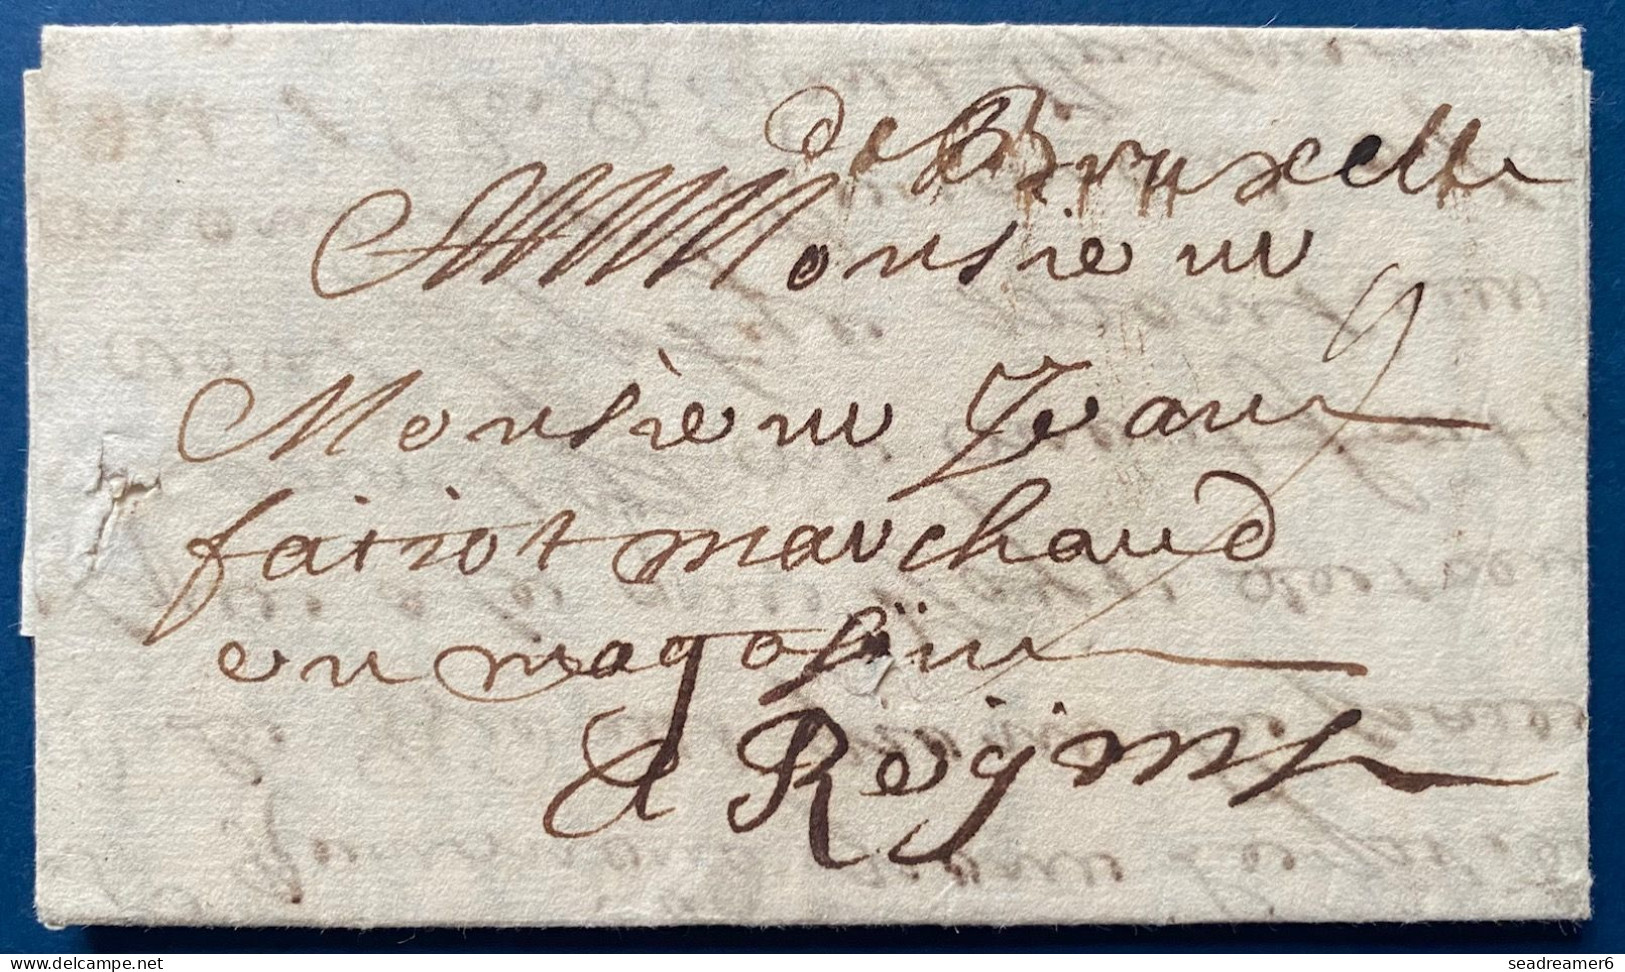 de Bruxelle
Monsieur
Monsièur Jean
fatiot marchand
en magasin
A Reijms
delcampe.net
seadreamer6